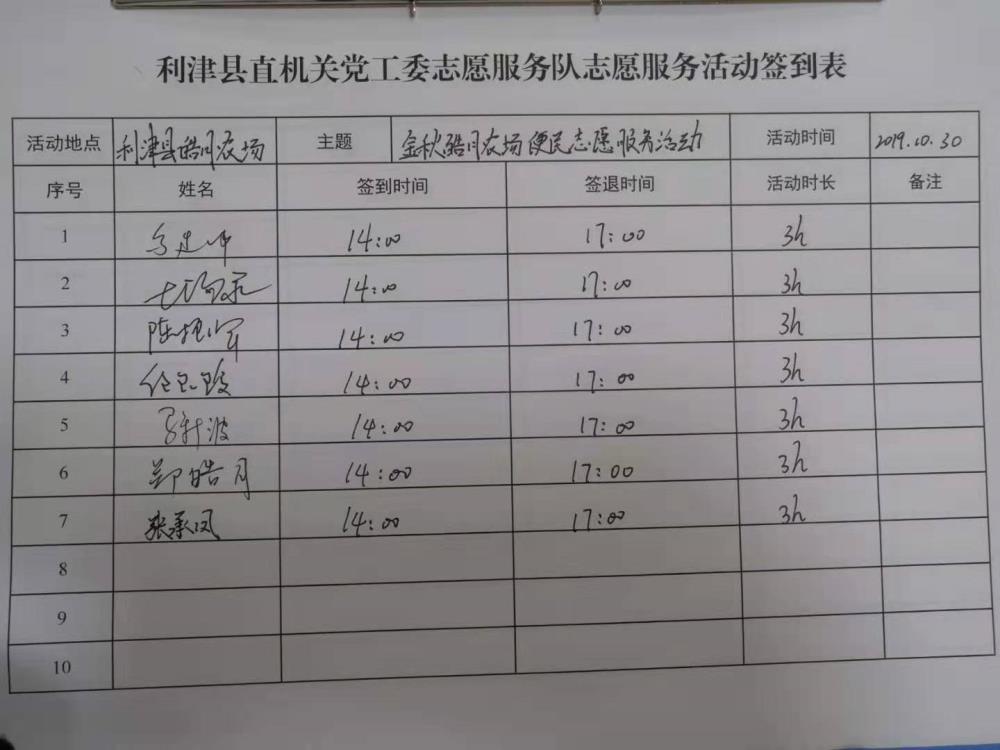 利津县直机关党工委志愿服务队志愿服务活动签到表
活动地点 利津县皓月农场 主题 金秋皓月农场便民志愿服务活动 活动时间 2019.10.30
序号 姓名 签到时间 签退时间 活动时长 备注
1 14:00 17:00 3h
2 14:00 17:00 3h
3 14:00 17:00 3h
4 14:00 17:00 3h
5 14:00 17:00 3h
6 郑皓月 14:00 17:00 3h
7 张承凤 14:00 17:00 3h
8
9
10